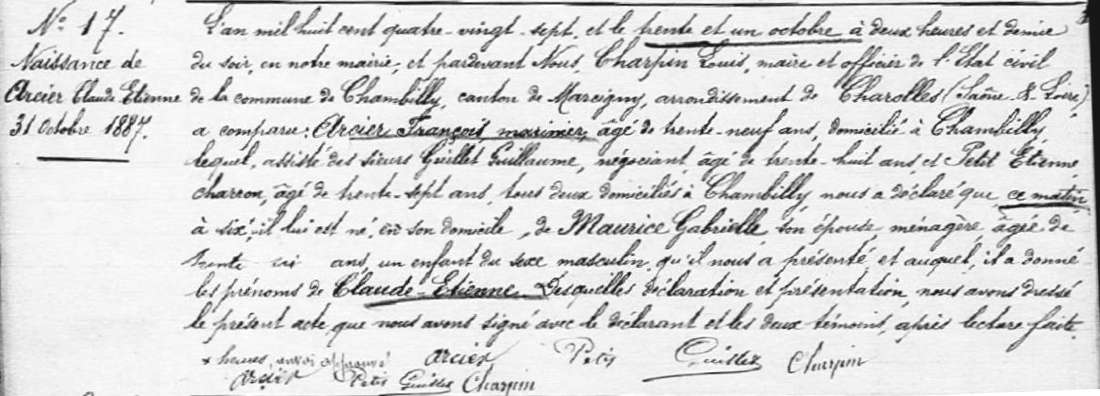 N° 17.
Naissance de
Arcier Claude Etienne
31 Octobre 1887.
L'an mil huit cent quatre-vingt-sept, et le trente et un octobre à deux heures et demie
du soir, en notre mairie, et pardevant Nous, Charpin Louis, maire et officier de l'Etat civil
de la commune de Chambilly, canton de Marcigny, arrondissement de Charolles (Saône & Loire)
a comparu: Arcier François marinier, âgé de trente-neuf ans, domicilié à Chambilly
lequel, assisté des sieurs Guillet Guillaume, négociant âgé de trente-huit ans, et Petit Etienne
charron, âgé de trente-sept ans, tous deux domiciliés à Chambilly nous a déclaré que ce matin
à six, il lui est né, en son domicile, de Maurice Gabrielle son épouse ménagère âgée de
trente ans, un enfant du sexe masculin qu'il nous a présenté et auquel, il a donné
les prénoms de Claude-Etienne. Desquelles déclaration et présentation, nous avons dressé
le présent acte que nous avons signé avec le déclarant et les deux témoins, après lecture faite.
x heures, renvoi approuvé Arcier Petit Guillet Charpin
Arcier Petit Guillet Charpin